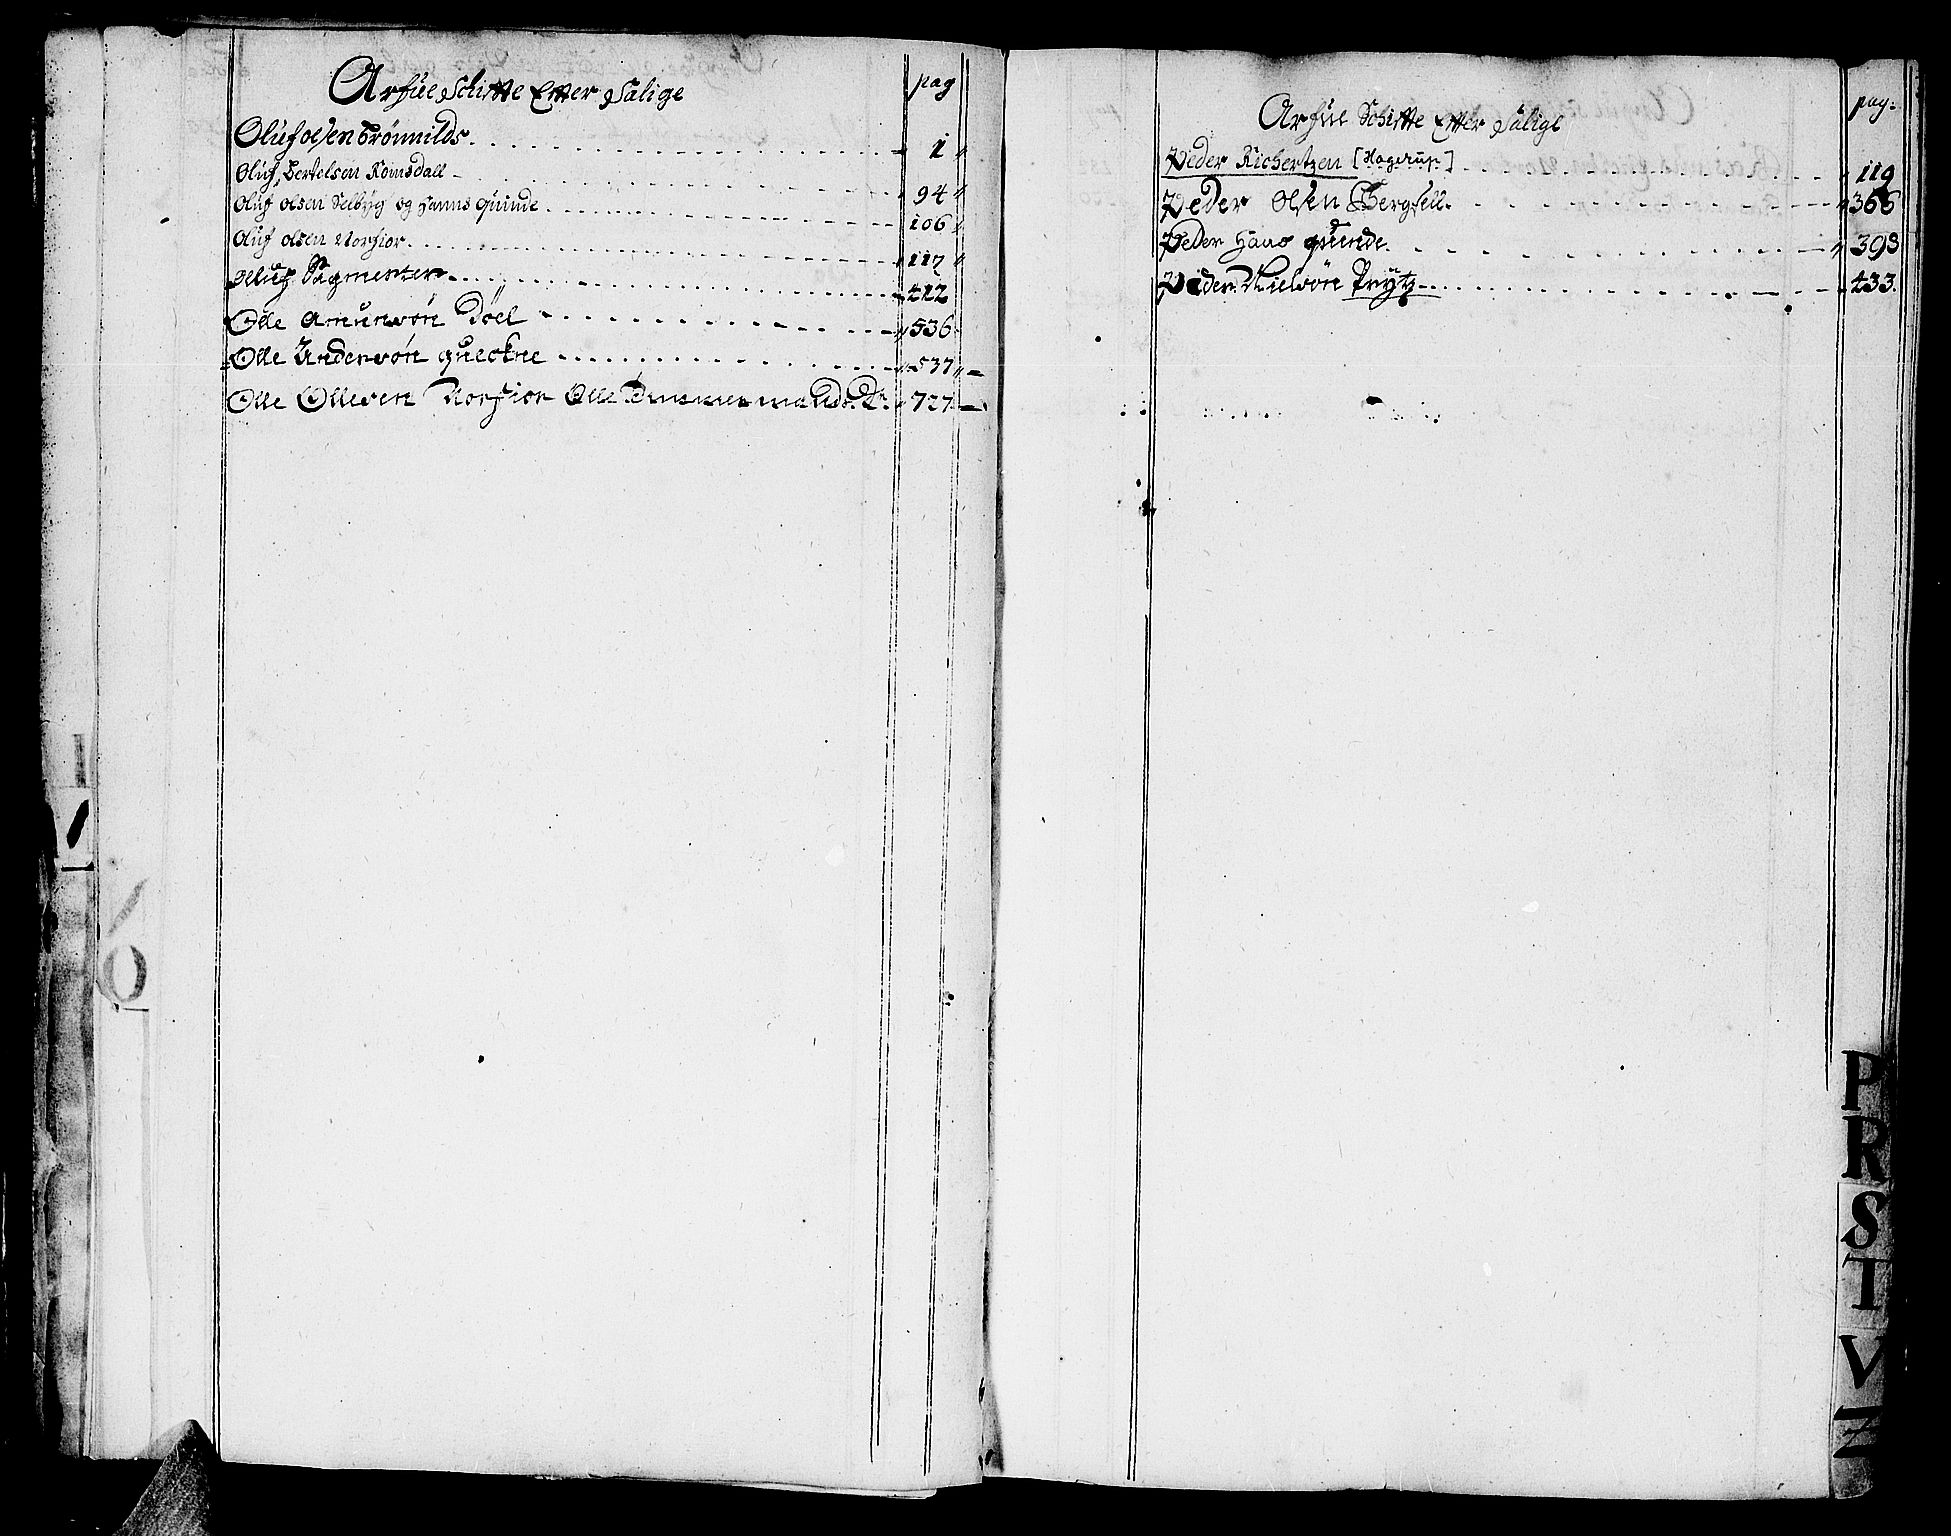 Arfue Schiftte Efter Salige
pag
Oluf olsen Trönnilds 1
Oluf Bertelsen Romsdall 94
Oluf olsen Selbÿg og Hanns quinde 106
Oluf olsen Norfior 117
Oluf Sagmester 212
Olle Amunsön Döel 536
Olle Andersön queckne 537
Olle Ollesen Norfior Olle 727
Arfue Schiftte Efter Salige
pag.
Peder Richertzen [Hagerup] 119
Peder Olsen Bergsell 366
Peder Hans quinde 393
Peder Nielsön Prÿtz 433.
O
P
R
S
T
V
Z